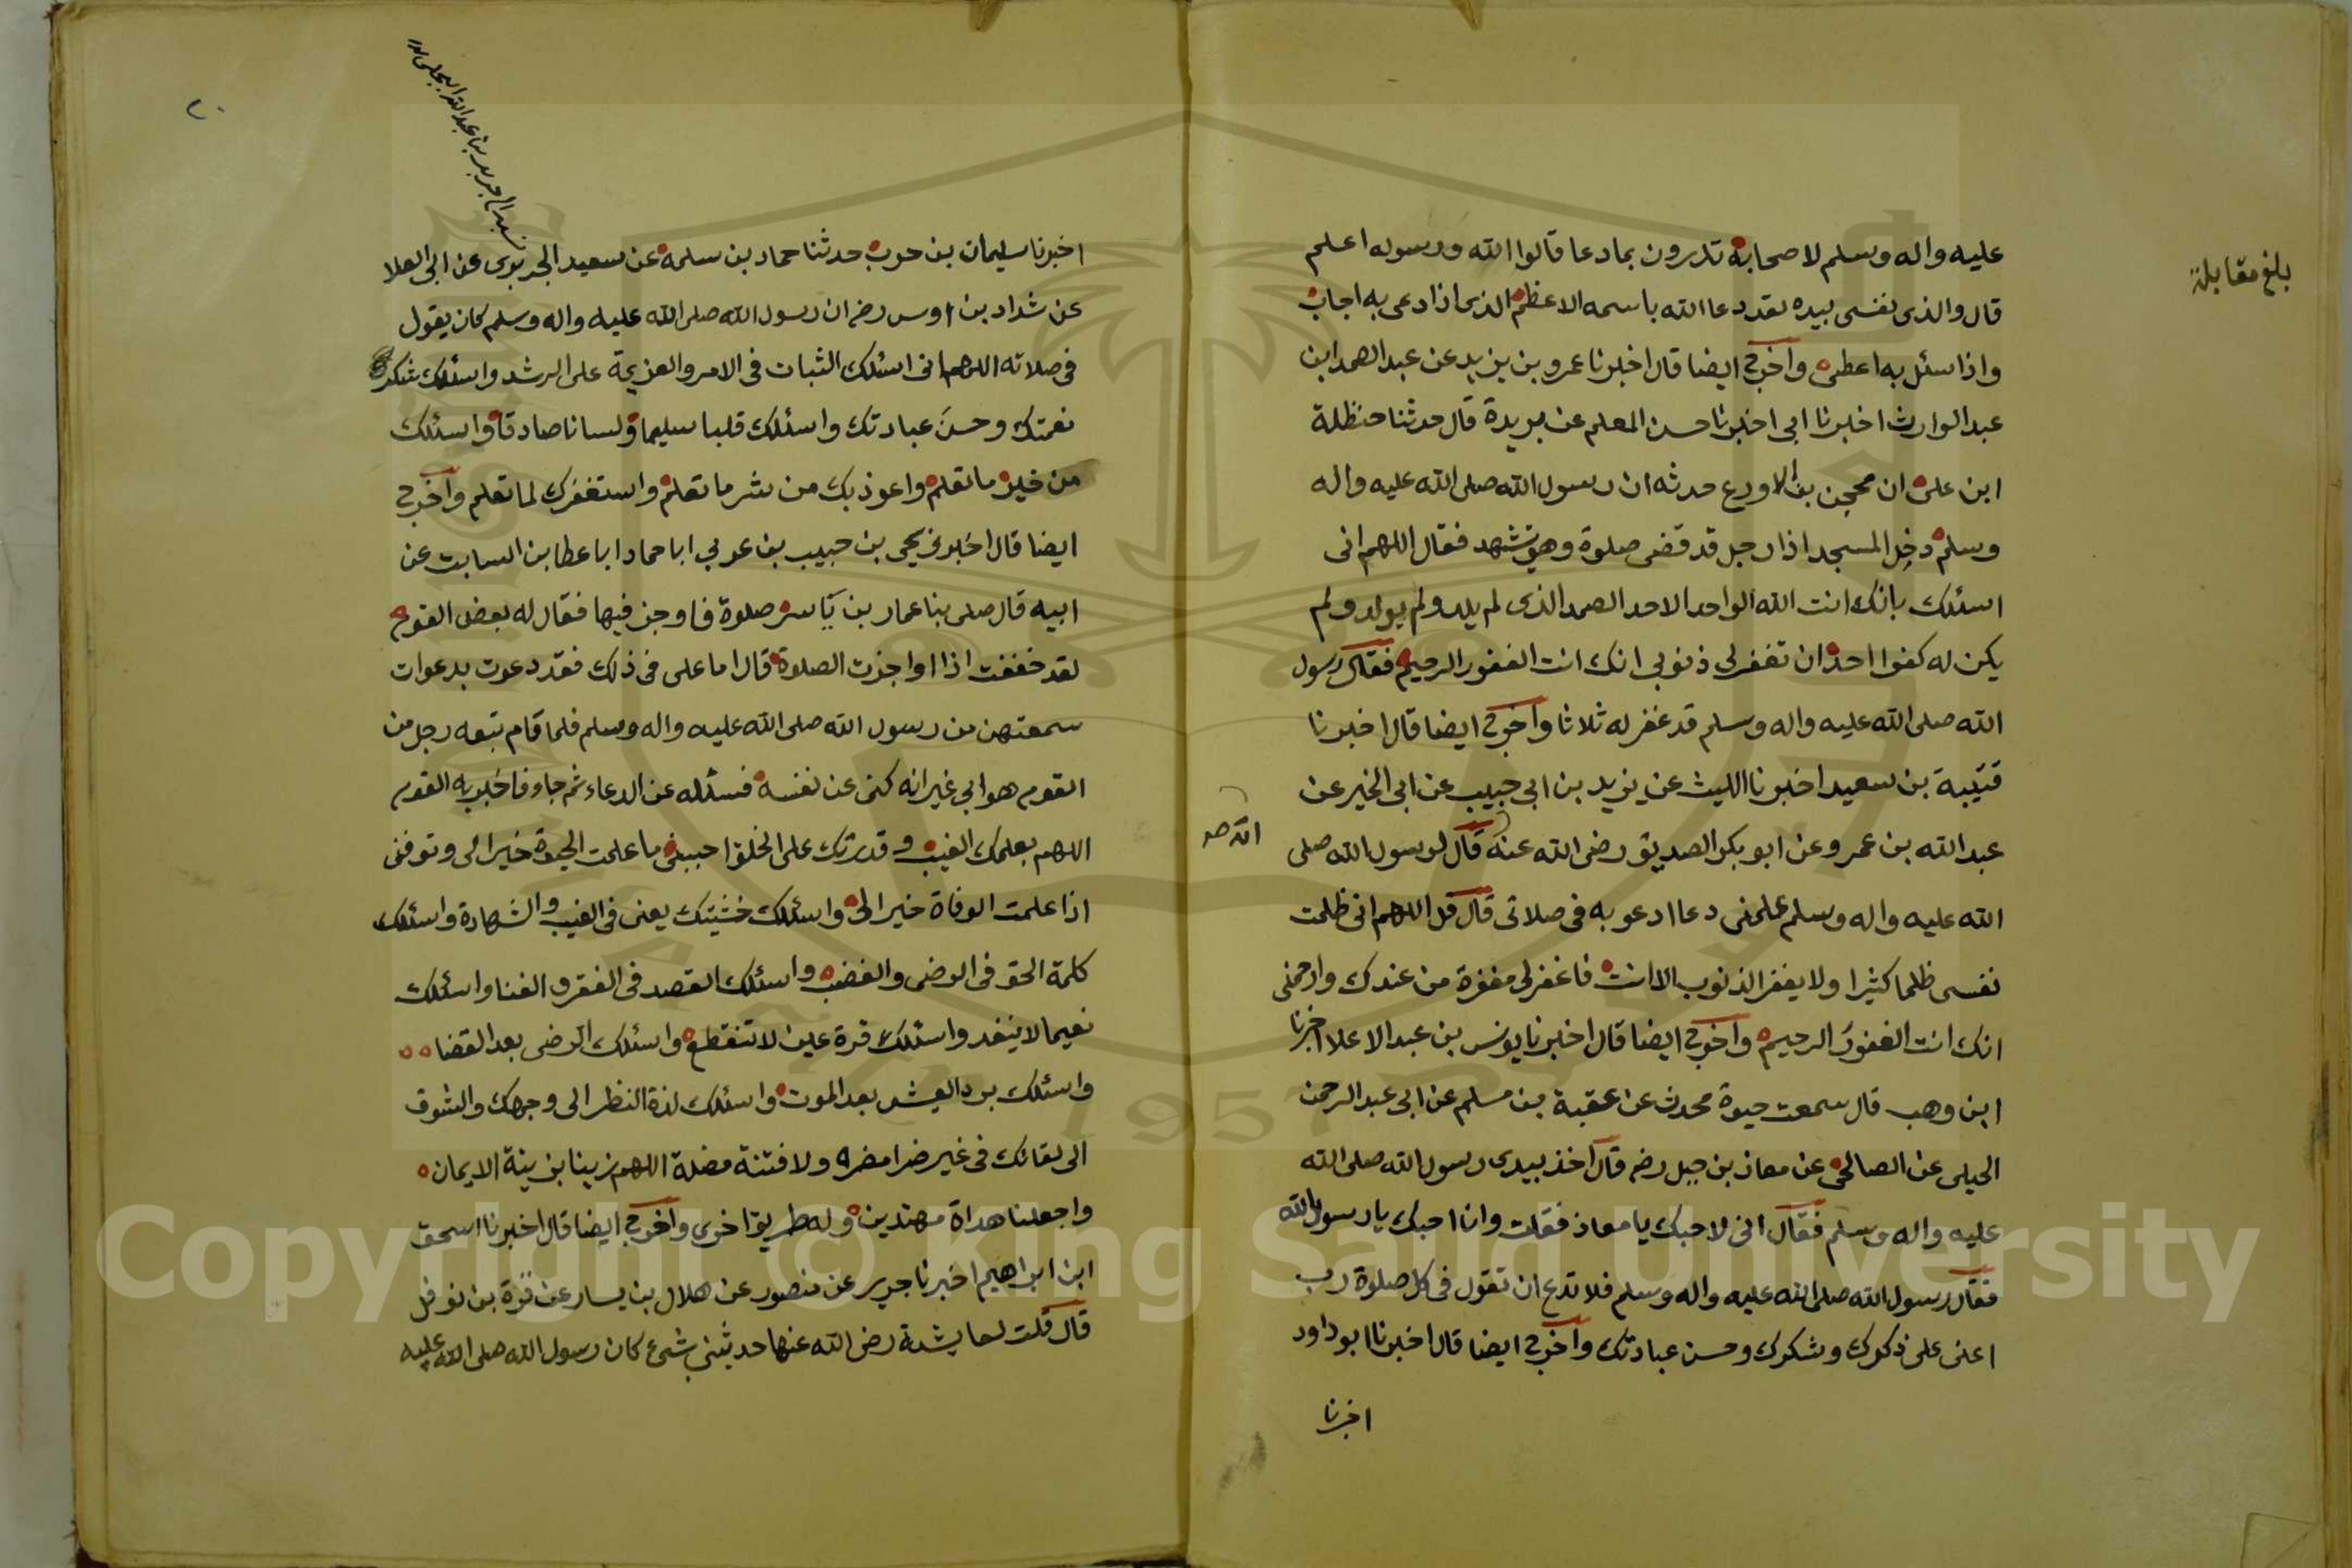 بلغ مقابلة
عليه واله وسلم لاصحابه تدرون بما دعا قالوا الله ورسوله اعلم
قال والذى نفسى بيده لقد دعا الله باسمه الاعظم الذى اذا دعى به اجاب
واذا سئل به اعطى واخرج ايضا قال اخبرنا عمرو بن يزيد عن عبد الصمد ابن
عبد الوارث اخبرنا ابى اخبرنا حسن المعلم عن بريدة قال حدثنا حنظلة
ابن على ان محجن بن الاورع حدثه ان رسول الله صلى الله عليه واله
وسلم دخل المسجد اذا رجل قد قضى صلوة وهو يتشهد فقال اللهم انى
اسئلك بانك انت الله الواحد الاحد الصمد الذى لم يلد ولم يولد ولم
يكن له كفوا احد ان تغفر لى ذنوبى انك انت الغفور الرحيم فقال رسول
الله صلى الله عليه واله وسلم قد غفر له ثلاثا واخرج ايضا قال اخبرنا
قتيبة بن سعيد اخبرنا الليث عن يزيد بن ابى حبيب عن ابى الخير عن
عبد الله بن عمرو عن ابو بكر الصديق رضى الله عنه قال لرسول الله صلى
الله عليه واله وسلم علمنى دعا ادعو به فى صلاتى قال قل اللهم انى ظلمت
نفسى ظلما كثيرا ولا يغفر الذنوب الا انت فاغفر لى مغفرة من عندك وارحمنى
انك انت الغفور الرحيم واخرج ايضا قال اخبرنا يونس بن عبد الاعلا اخبرنا
ابن وهب قال سمعت حيوة محدث عن عقبة بن مسلم عن ابى عبد الرحمن
الحبلى عن الصالحى عن معاذ بن جبل رضه قال اخذ بيدى رسول الله صلى الله
عليه واله وسلم فقال انى لاحبك يا معاذ فقلت وانا احبك يا رسول الله
فقال رسول الله صلى الله عليه واله وسلم فلا تدع ان تقول فى كل صلوة رب
اعنى على ذكرك وشكرك وحسن عبادتك واخرج ايضا قال اخبرنا ابو داود
اخبرنا
اخبرنا سليمان بن حرب حدثنا حماد بن سلمه عن سعيد الجريرى عن ابى العلا
عن شداد بن اوس رضه ان رسول الله صلى الله عليه واله وسلم كان يقول
فى صلاته اللهم انى اسئلك الثبات فى الامر والعزيمة على الرشد واسئلك شكر
نعمتك وحسن عبادتك واسئلك قلبا سليما ولسانا صادقا واسئلك
من خير ما تعلم واعوذ بك من شر ما تعلم واستغفرك لما تعلم واخرج
ايضا قال اخبرنى يحيى بن حبيب بن عربي ابا حماد ابا عطا بن السابت عن
ابيه قال صلى بنا عمار بن ياسر صلوة فاوجز فيها فقال له بعض القوم
لقد خففت اذا اواجزت الصلوة قال اما على فى ذلك فقد دعوت بدعوات
سمعتهن من رسول الله صلى الله عليه واله وسلم فلما قام تبعه رجل من
القوم هو ابي غير انه كنى عن نفسه فسئله عن الدعاء ثم جاء فاخبر به القوم
اللهم بعلمك الغيب وقدرتك على الخلق احيينى ما علمت الحيوة خيرا لى وتوفنى
اذا علمت الوفاة خيرا لى واسئلك خشيتك يعنى فى الغيب والشهادة واسئلك
كلمة الحق فى الرضى والغضب واسئلك القصد فى الفقر والغنا واسئلك
نعيما لا ينفد واسئلك قرة عين لا تنقطع واسئلك الرضى بعد القضا
واسئلك برد العيش بعد الموت واسئلك لذة النظر الى وجهك والشوق
الى لقائك فى غير ضرا مضره ولا فتنة مضلة اللهم زينا بزينة الايمان
واجعلنا هداة مهتدين وله طريق اخرى واخرج ايضا قال اخبرنا اسحق
ابن ابراهيم اخبرنا جرير عن منصور عن هلال بن يسار عن قرة بن نوفل
قال قلت لعايشة رضى الله عنها حدثينى بشئ كان رسول الله صلى الله عليه
Copyright © King Saud University
1957